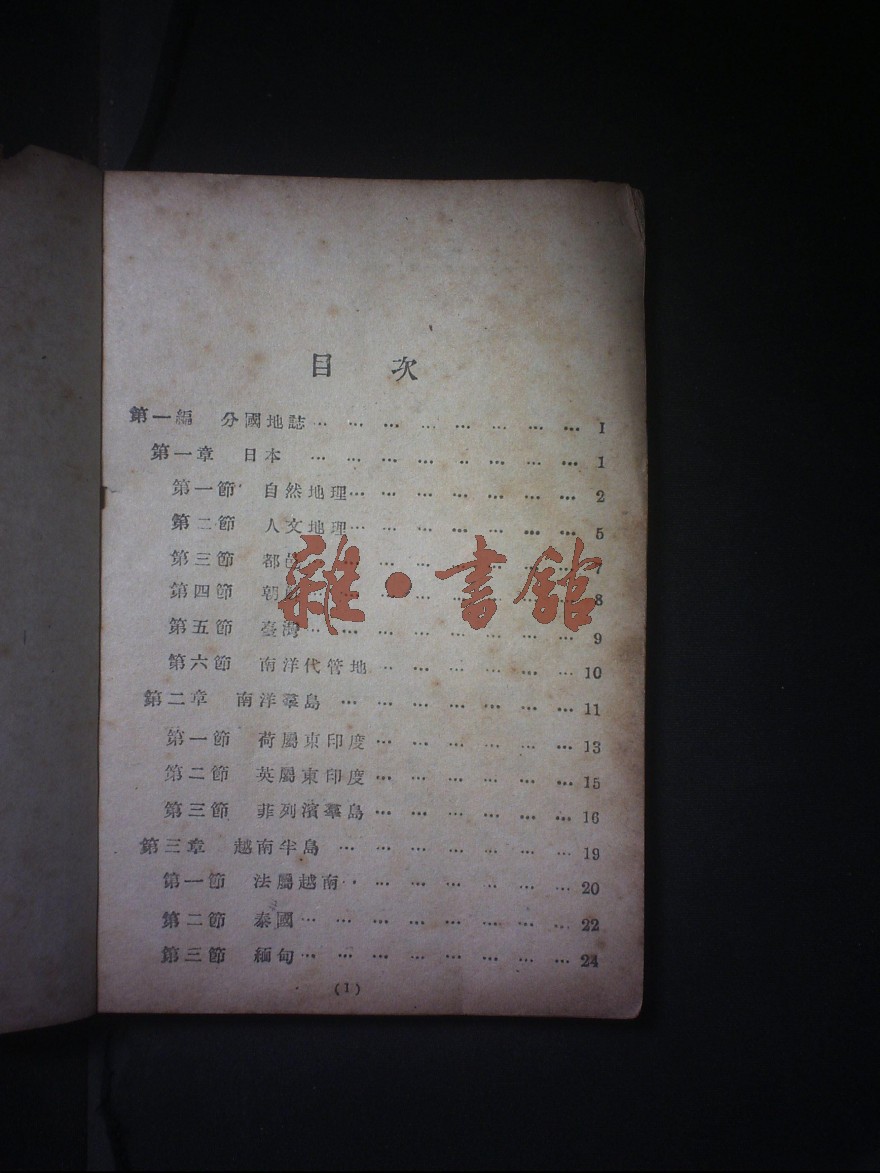 目 次
第一編 分國地誌 … … … … … … … … 1
第一章 日本 … … … … … … … … 1
第一節 自然地理 … … … … … … … 2
第二節 人文地理 … … … … … … … 5
第三節 都邑 … … … … … … … …
第四節 朝鮮 … … … … … … … … 8
第五節 臺灣 … … … … … … … … 9
第六節 南洋代管地 … … … … … … 10
第二章 南洋羣島 … … … … … … … 11
第一節 荷屬東印度 … … … … … … 13
第二節 英屬東印度 … … … … … … 15
第三節 菲列濱羣島 … … … … … … 16
第三章 越南半島 … … … … … … … 19
第一節 法屬越南 … … … … … … … 20
第二節 泰國 … … … … … … … … 22
第三節 緬甸 … … … … … … … … 24
(1)
雜·書館